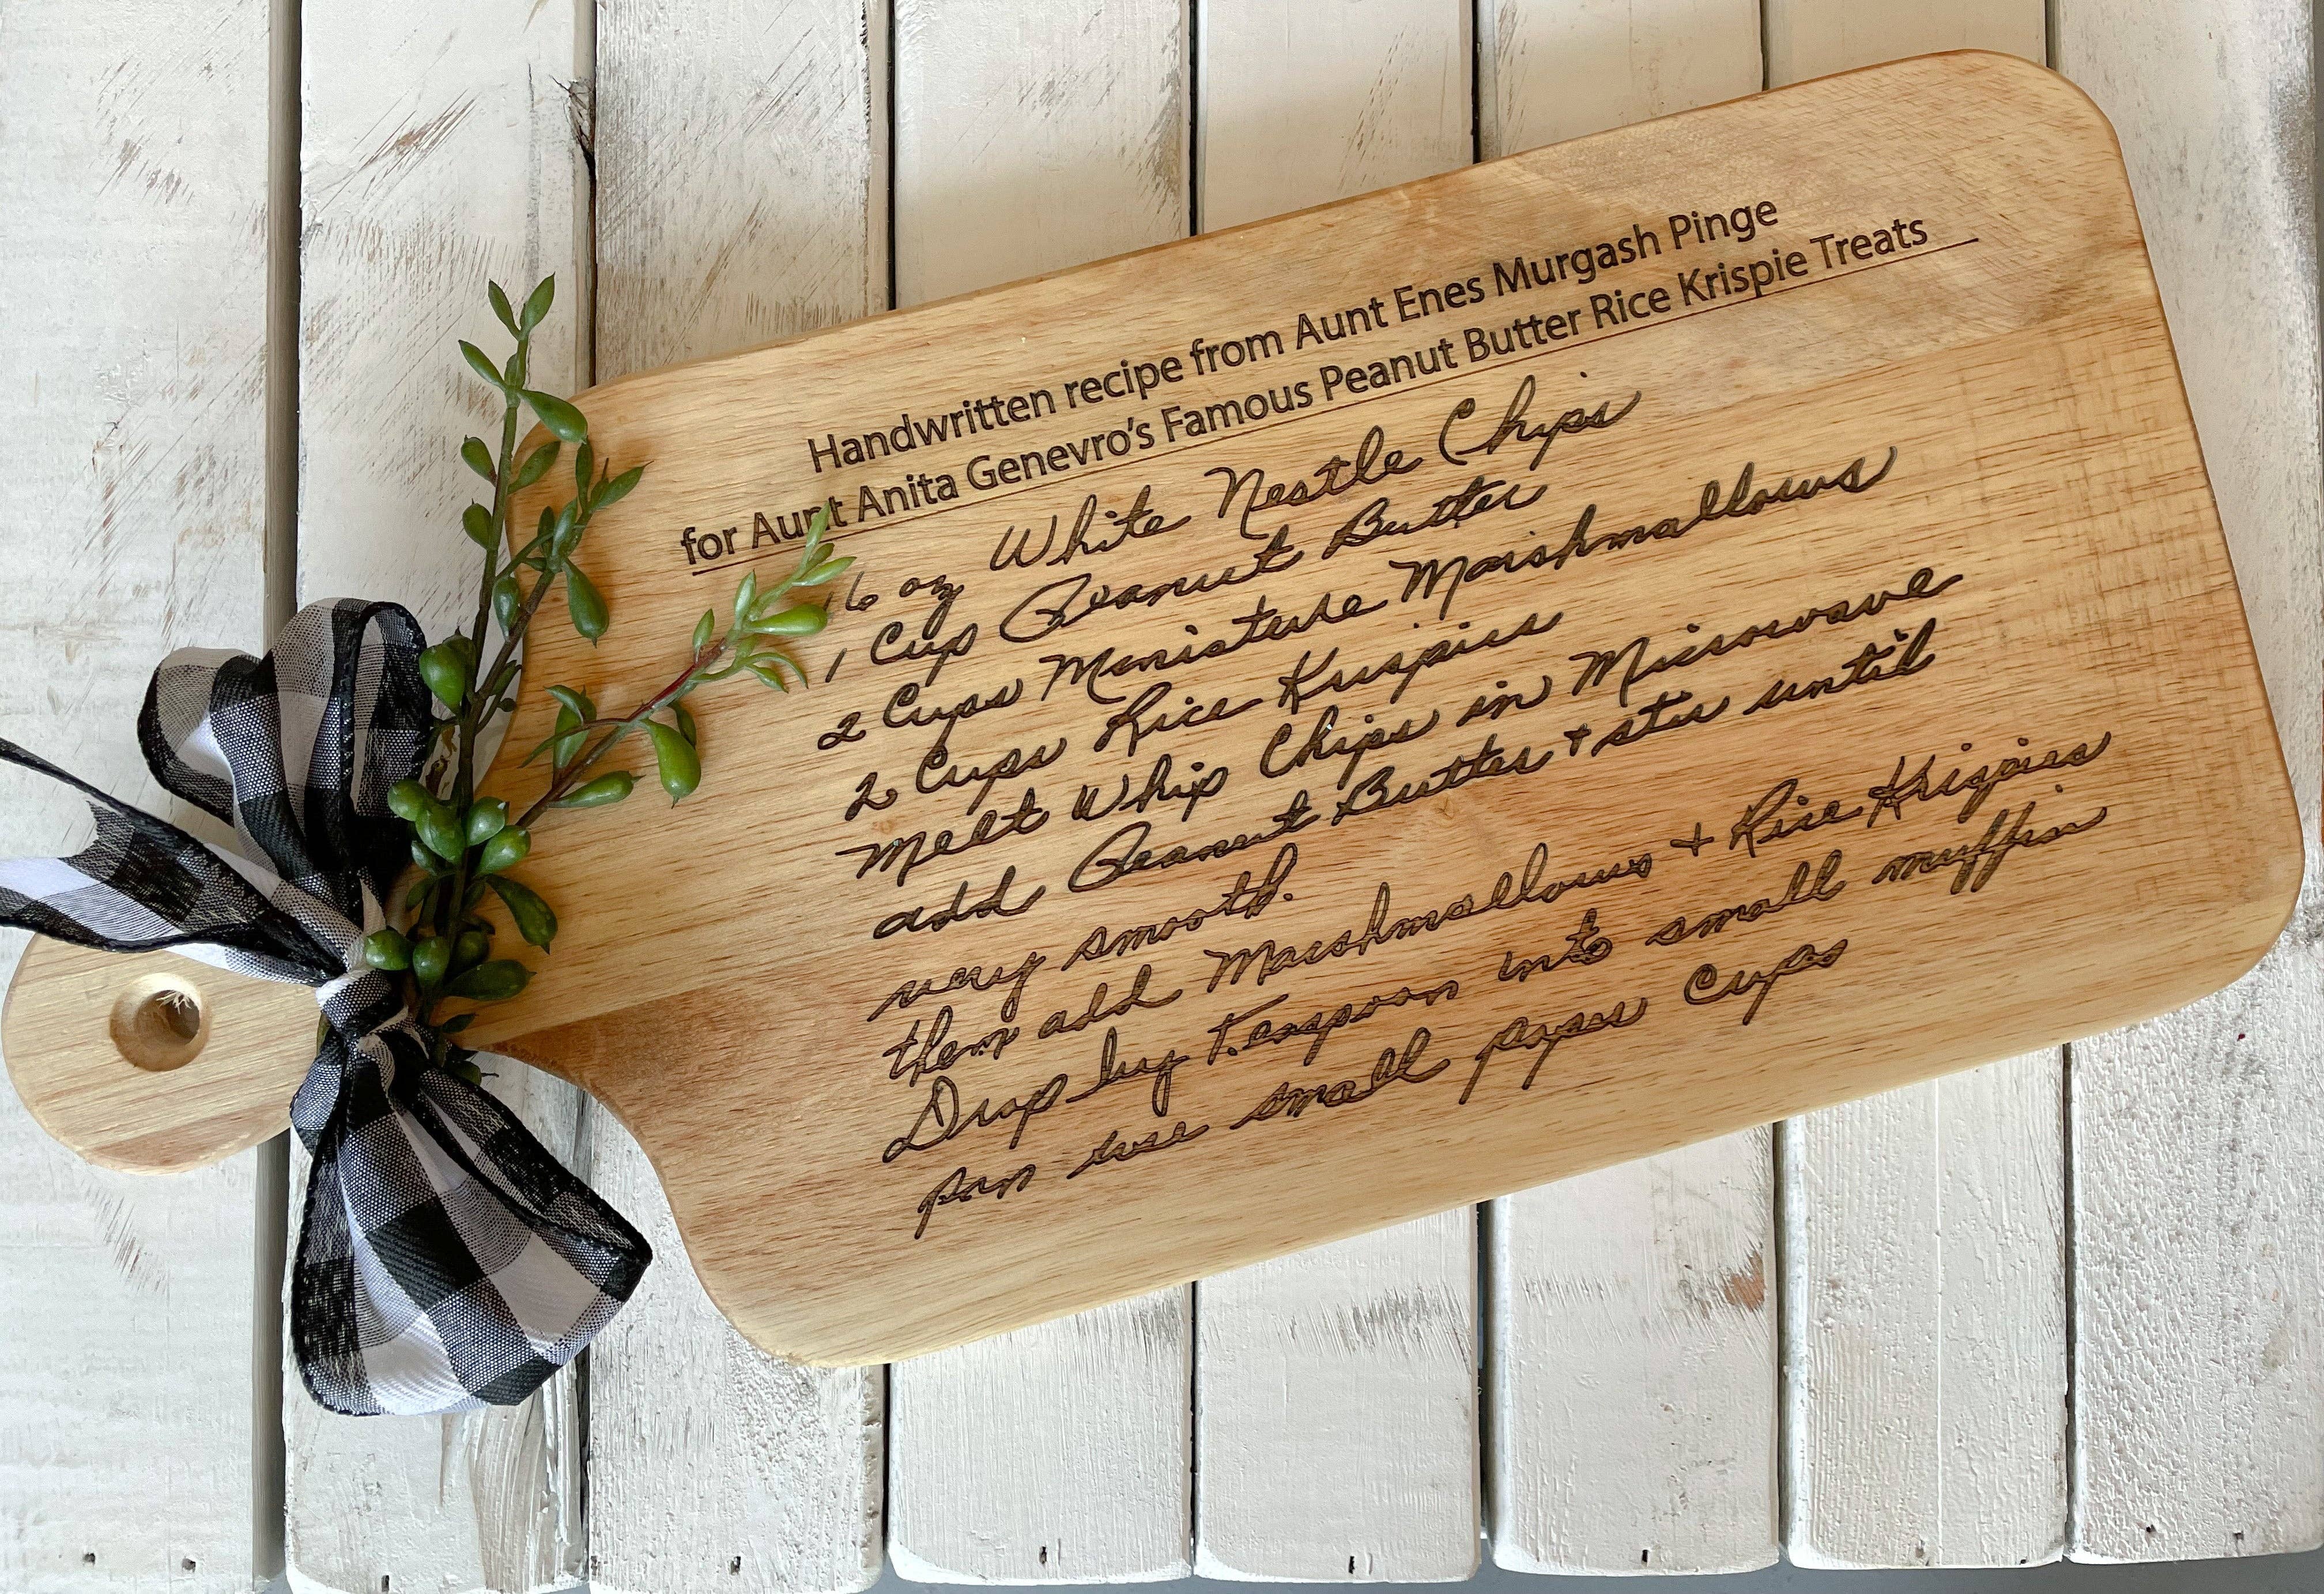 Handwritten recipe from Aunt Enes Murgash Pinge
for Aunt Anita Genevro's Famous Peanut Butter Rice Krispie Treats
16 oz White Nestle Chips
1 Cup Peanut Butter
2 Cups Ministure Marshmallows
2 Cups Rice Krispies
Melt Whip Chips in Microwave
add Peanut Butter + stir until
very smooth.
then add Marshmallows + Rice Krispies
Drop by Teaspoon into small muffin
pan use small paper Cups